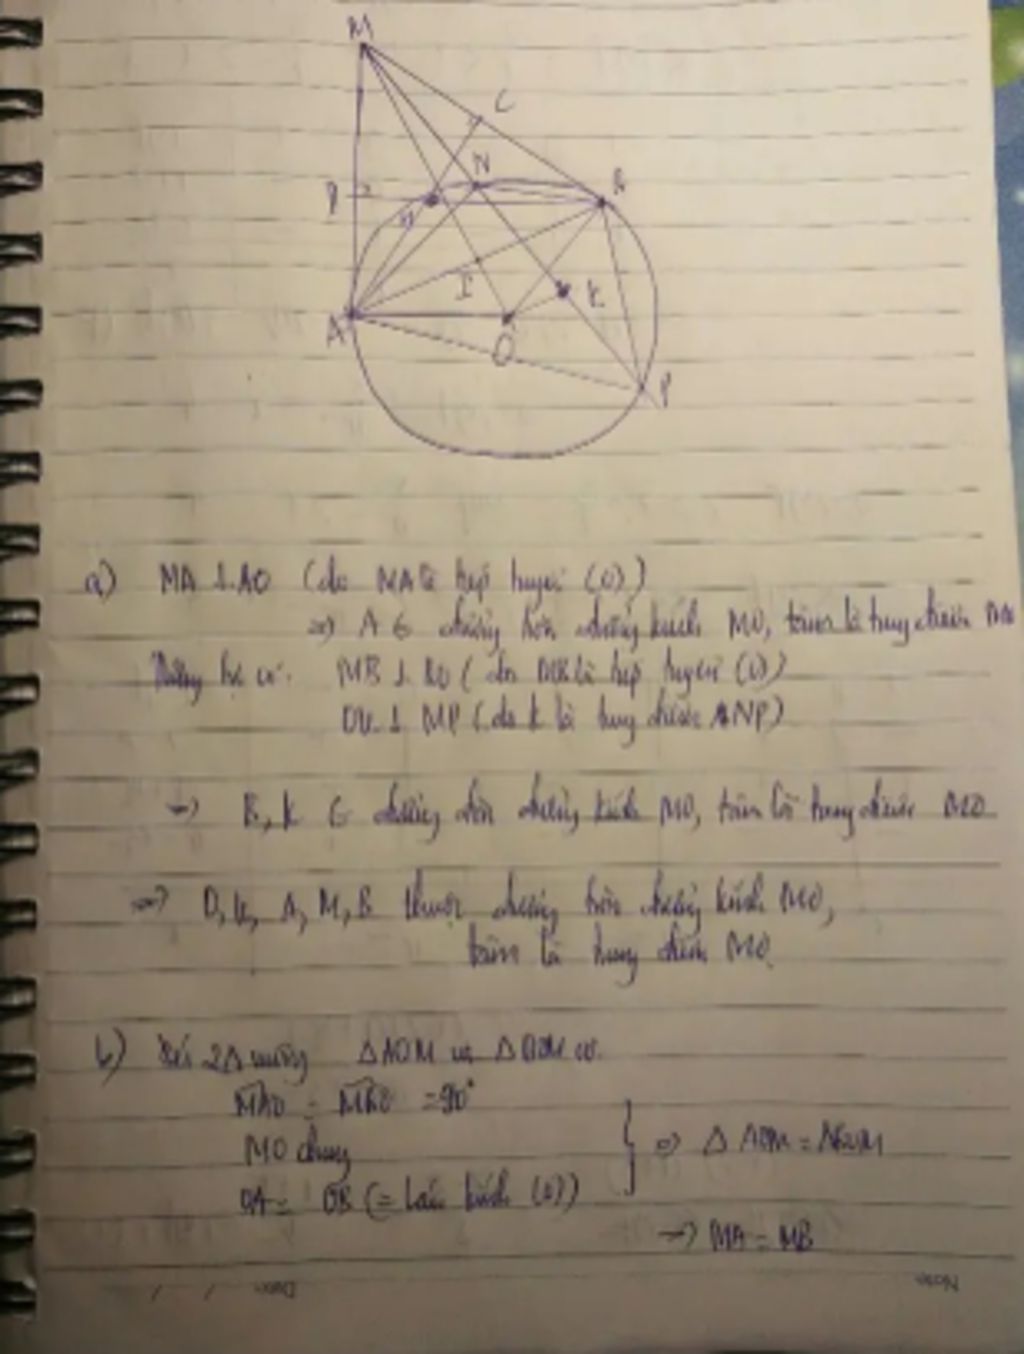 M
C
N
B
D
H
I
K
A
O
P
a) MA ⊥ AO (do MA là tiếp tuyến (O))
=> A ∈ đường tròn đường kính MO, tâm là trung điểm MO
MB ⊥ BO (do MB là tiếp tuyến (O))
OK ⊥ MP (do K là trung điểm NP)
=> B, K ∈ đường tròn đường kính MO, tâm là trung điểm MO
=> O, K, A, M, B thuộc đường tròn đường kính MO,
tâm là trung điểm MO.
b) Xét 2Δ vuông ΔAOM và ΔBOM có
MAO = MBO = 90°
MO chung
=> Δ AOM = ΔBOM
OA = OB (= bán kính (O))
=> MA = MB
Date
Note